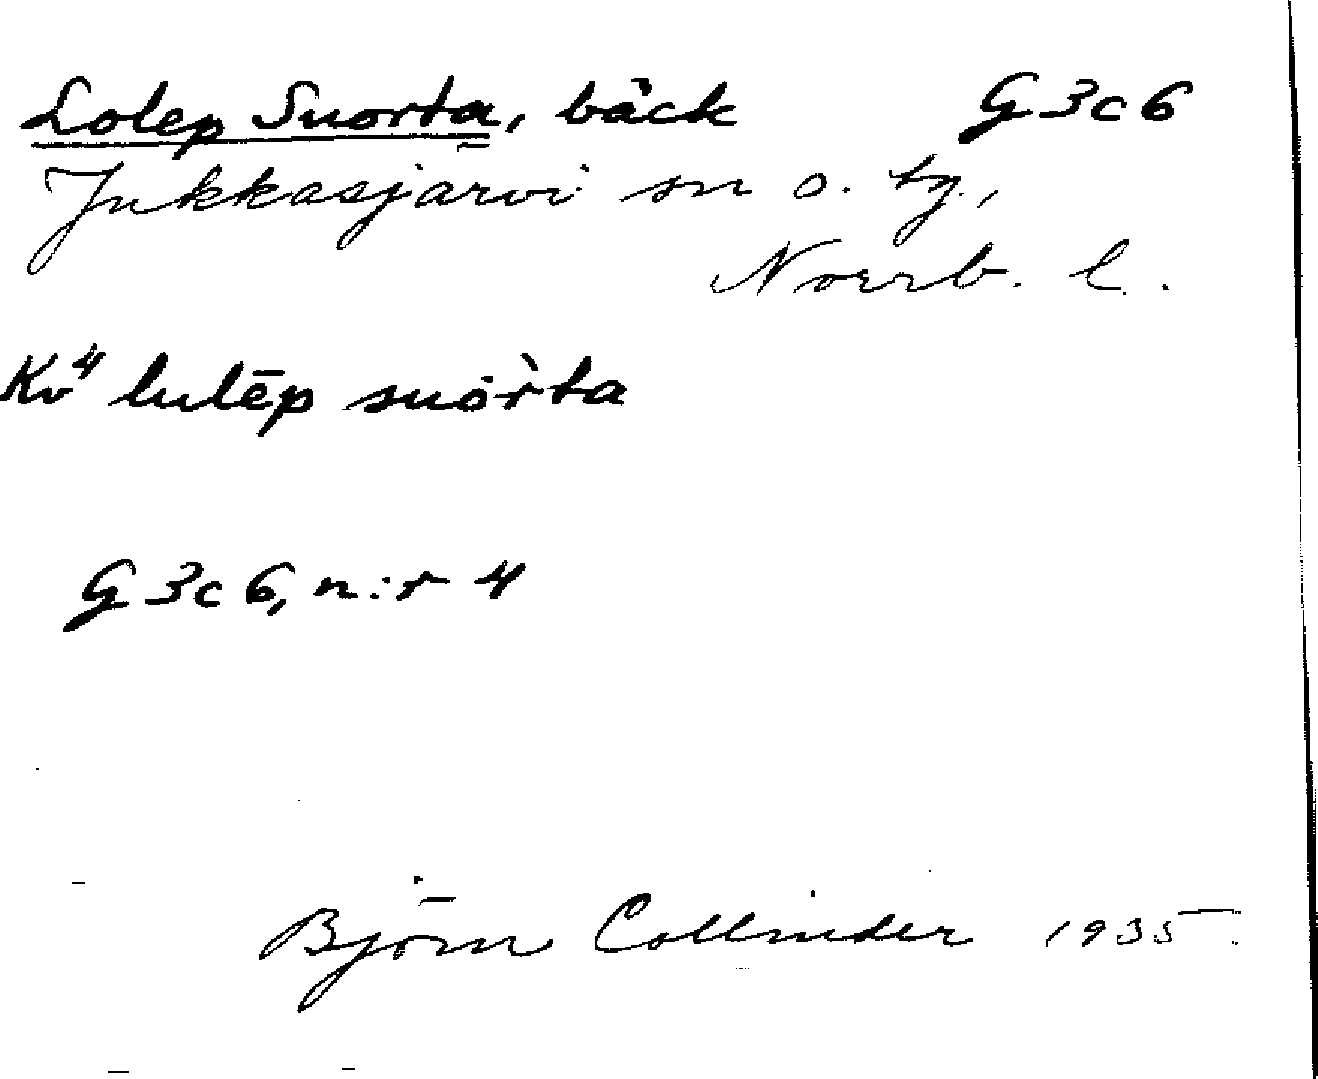 Lolep Snorta, bäck G 3 c 6
Jukkasjärvi sn o. tg.,
Norrb. l.
Kv⁴ lulēp snòr̀ta
G 3 c 6, n:r 4
Björn Collinder 1935.